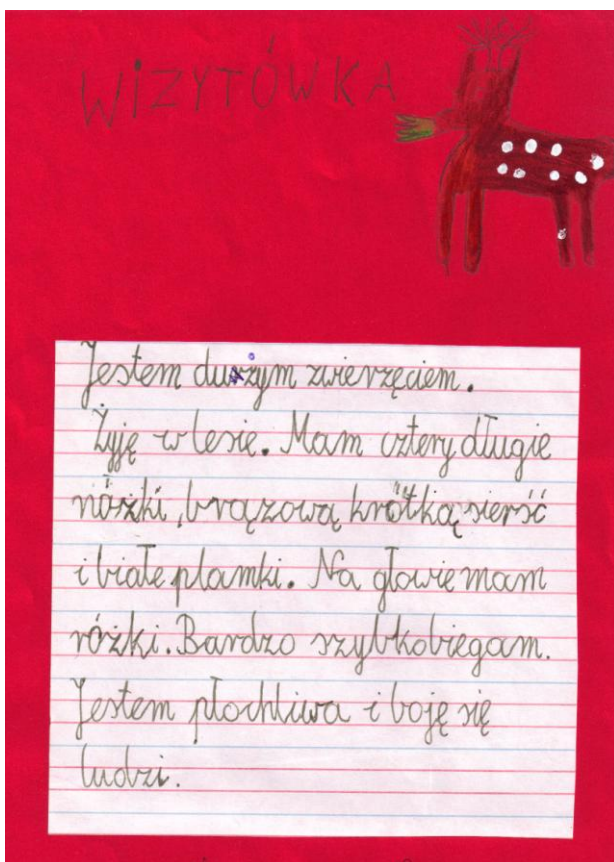 WIZYTÓWKA
Jestem dużym zwierzęciem.
Żyję w lesie. Mam cztery długie
nóżki, brązową krótką sierść
i białe plamki. Na głowie mam
różki. Bardzo szybko biegam.
Jestem płochliwa i boję się
ludzi.